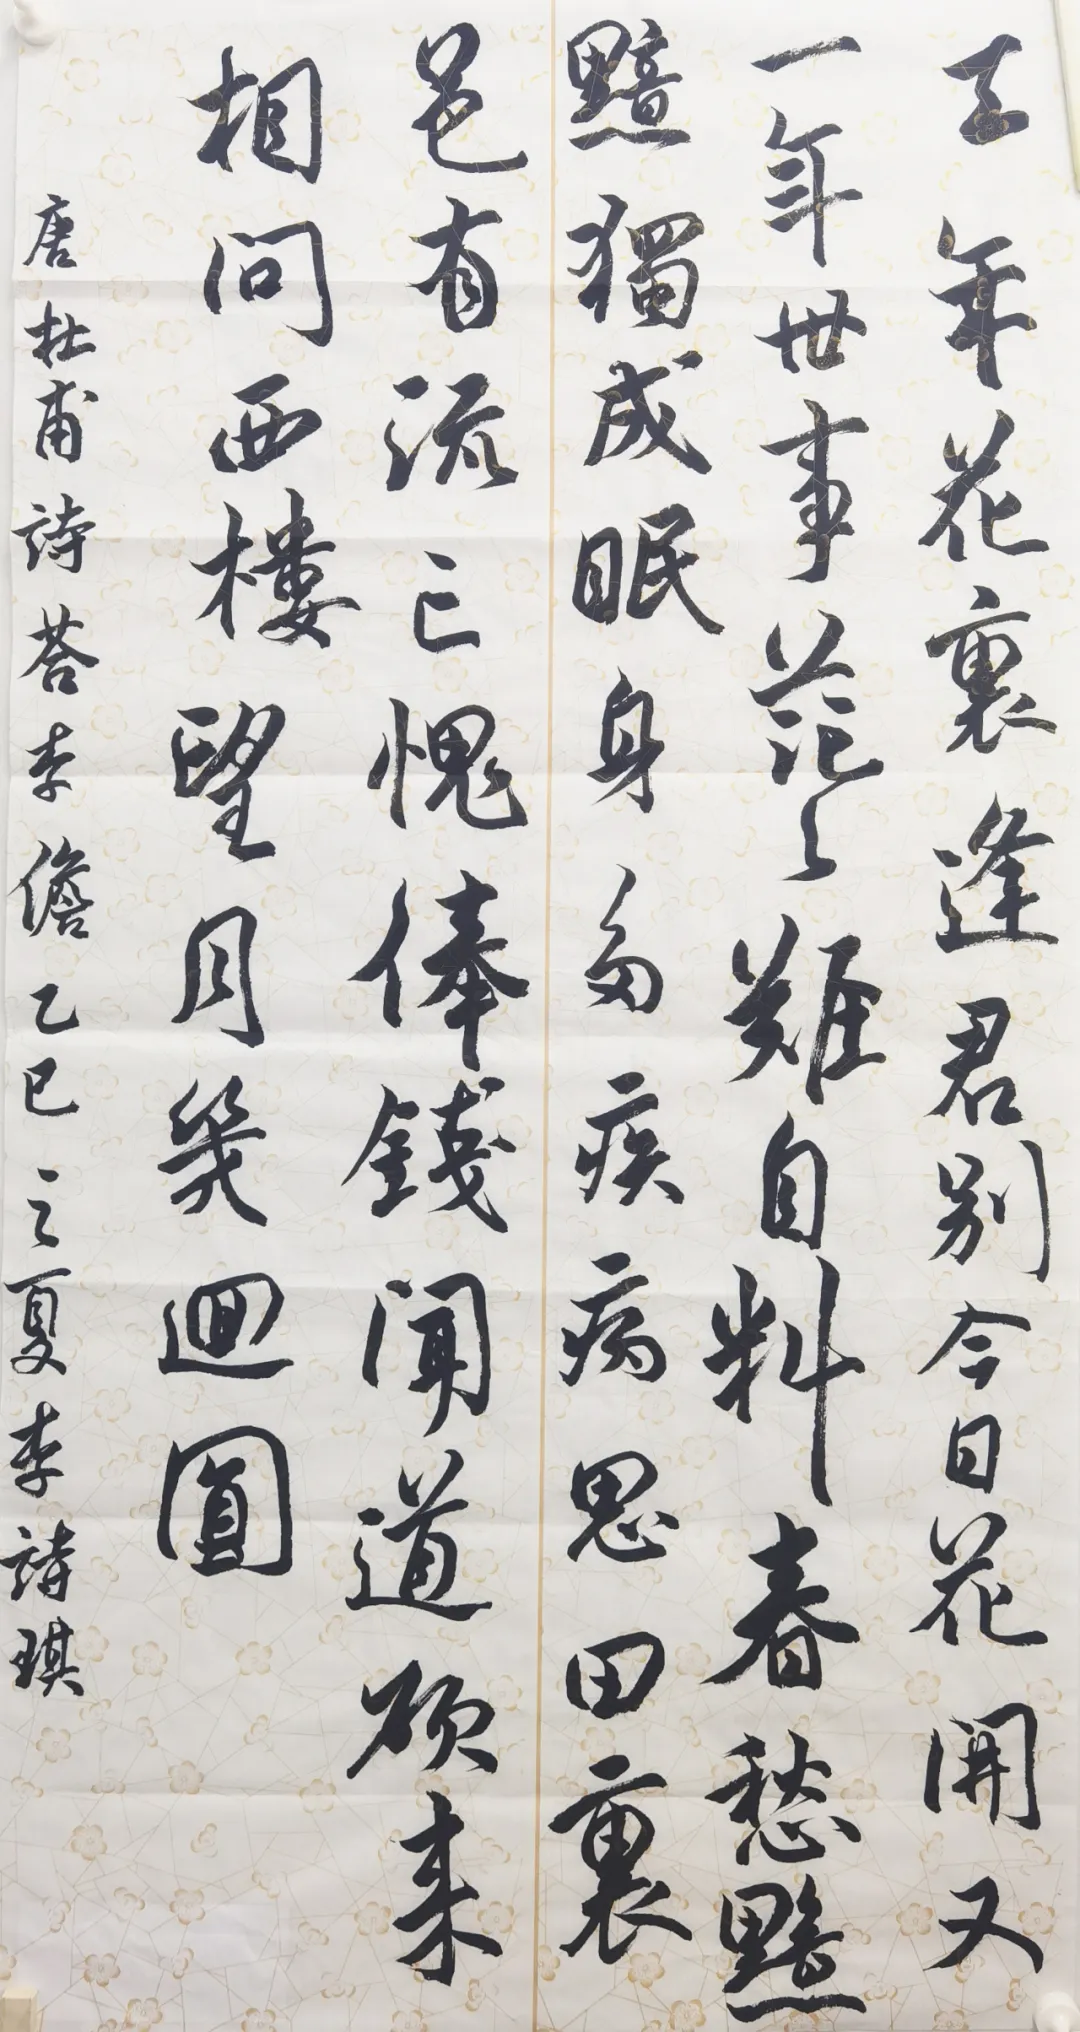 去年花裏逢君別今日花開又
一年世事茫々難自料春愁黯
黯獨成眠身多疾病思田裏
邑有流亡愧俸錢聞道欲来
相問西樓望月幾迴圓
唐杜甫詩荅李儋乙巳之夏李詩琪